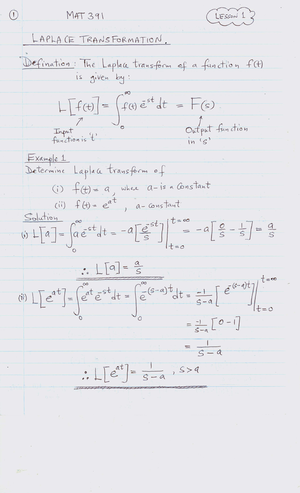 ① MAT 391 LESSON 1
LAPLACE TRANSFORMATION.
Defination: The Laplace transform of a function f(t)
is given by:
L[f(t)] = ∫₀^∞ f(t) e^{-st} dt = F(s)
Input function is 't' Output function in 's'
Example 1
Determine Laplace transform of
(i) f(t) = a, where a - is a constant
(ii) f(t) = e^{at}, a - constant
Solution
(i) L[a] = ∫₀^∞ a e^{-st} dt = -a[e^{-st}/s] |_{t=0}^{t=∞} = -a[0/s - 1/s] = a/s
∴ L[a] = a/s
(ii) L[e^{at}] = ∫₀^∞ e^{at} e^{-st} dt = ∫₀^∞ e^{-(s-a)t} dt = -1/(s-a) [e^{-(s-a)t}] |_{t=0}^{t=∞}
= -1/(s-a) [0-1]
= 1/(s-a)
∴ L[e^{at}] = 1/(s-a), s>a